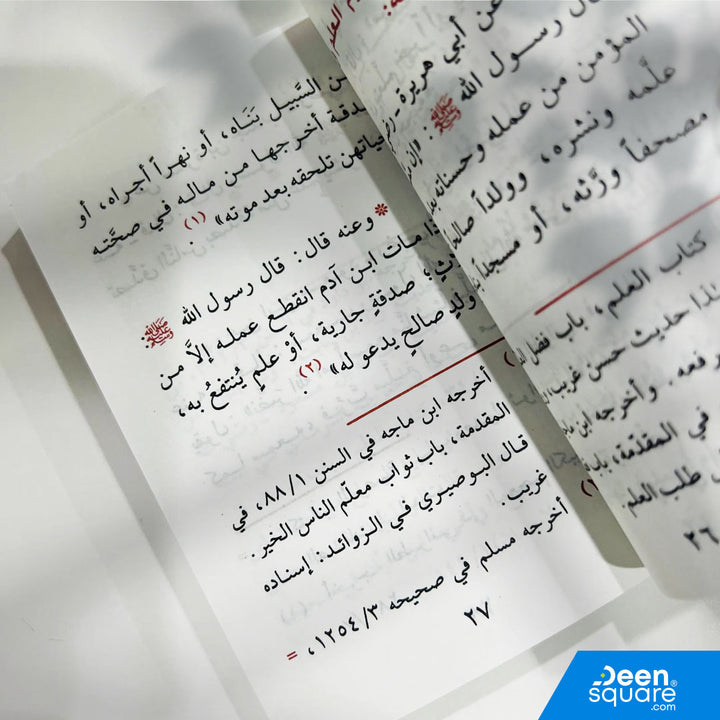 م العلم
عن أبي هريرة ـ رضي
ل رسول الله ﷺ : «إن
المؤمن من عمله وحسناته
علَّمه ونشره، وولداً صالحاً
مصحفاً ورَّثه، أو مسجداً
كتاب العلم، باب فضل
هذا حديث حسن غريب
فعه. وأخرجه ابن ماجه
في المقدمة، باب
طلب العلم.
٢٦
ن السَّبيل بَنَاه، أو نهراً أجراه، أو
دقة أخرجها من ماله في صحَّته
تلحقه بعد موته» (١) .
* وعنه قال: قال رسول الله ﷺ
ذا مات ابن آدم انقطع عمله إلَّا من
ثٍ، صدقةٍ جارية، أوْ علمٍ يُنتفعُ به،
ولدٍ صالحٍ يدعو له» (٢) .
) أخرجه ابن ماجه في السنن ٨٨/١، في
المقدمة، باب ثواب معلّم الناس الخير.
قال البوصيري في الزوائد: إسناده
غريب.
) أخرجه مسلم في صحيحه ١٢٥٤/٣، =
٢٧
Deen
square®
.com